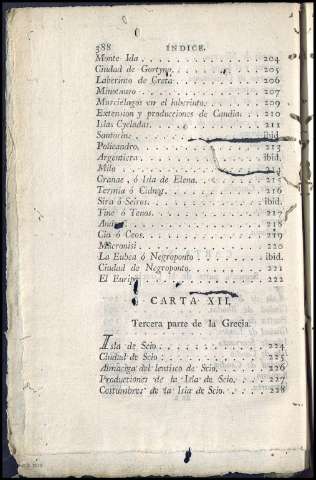 388 ÍNDICE.
Monte Ida . . . . . . . . . . . . . . 204
Ciudad de Gortyna . . . . . . . . . . 205
Laberinto de Creta . . . . . . . . . . 206
Minotauro . . . . . . . . . . . . . . 207
Murciélagos en el laberinto . . . . . . 209
Extension y producciones de Candia. . . 210
Islas Cycladas . . . . . . . . . . . . 211
Santorin . . . . . . . . . . . . . . ibid.
Policandro . . . . . . . . . . . . . 213
Argentiera . . . . . . . . . . . . . ibid.
Milo . . . . . . . . . . . . . . . . 214
Cranae, ó Isla de Elena. . . . . . . . 215
Termia ó Cidnos . . . . . . . . . . . 216
Sira ó Seiros . . . . . . . . . . . . ibid.
Tine ó Tenos . . . . . . . . . . . . 217
218
Cia ó Ceos . . . . . . . . . . . . . 219
Macronisi . . . . . . . . . . . . . . 220
La Eubea ó Negroponto . . . . . . . . ibid.
Ciudad de Negroponto . . . . . . . . . 221
El Euripo . . . . . . . . . . . . . . 222
CARTA XII.
Tercera parte de la Grecia.
Isla de Scio . . . . . . . . . . . . . 224
Ciudad de Scio . . . . . . . . . . . . 225
Almáciga del lentisco de Scio. . . . . . 226
Producciones de la Isla de Scio. . . . . 227
Costumbres de la Isla de Scio. . . . . . 228